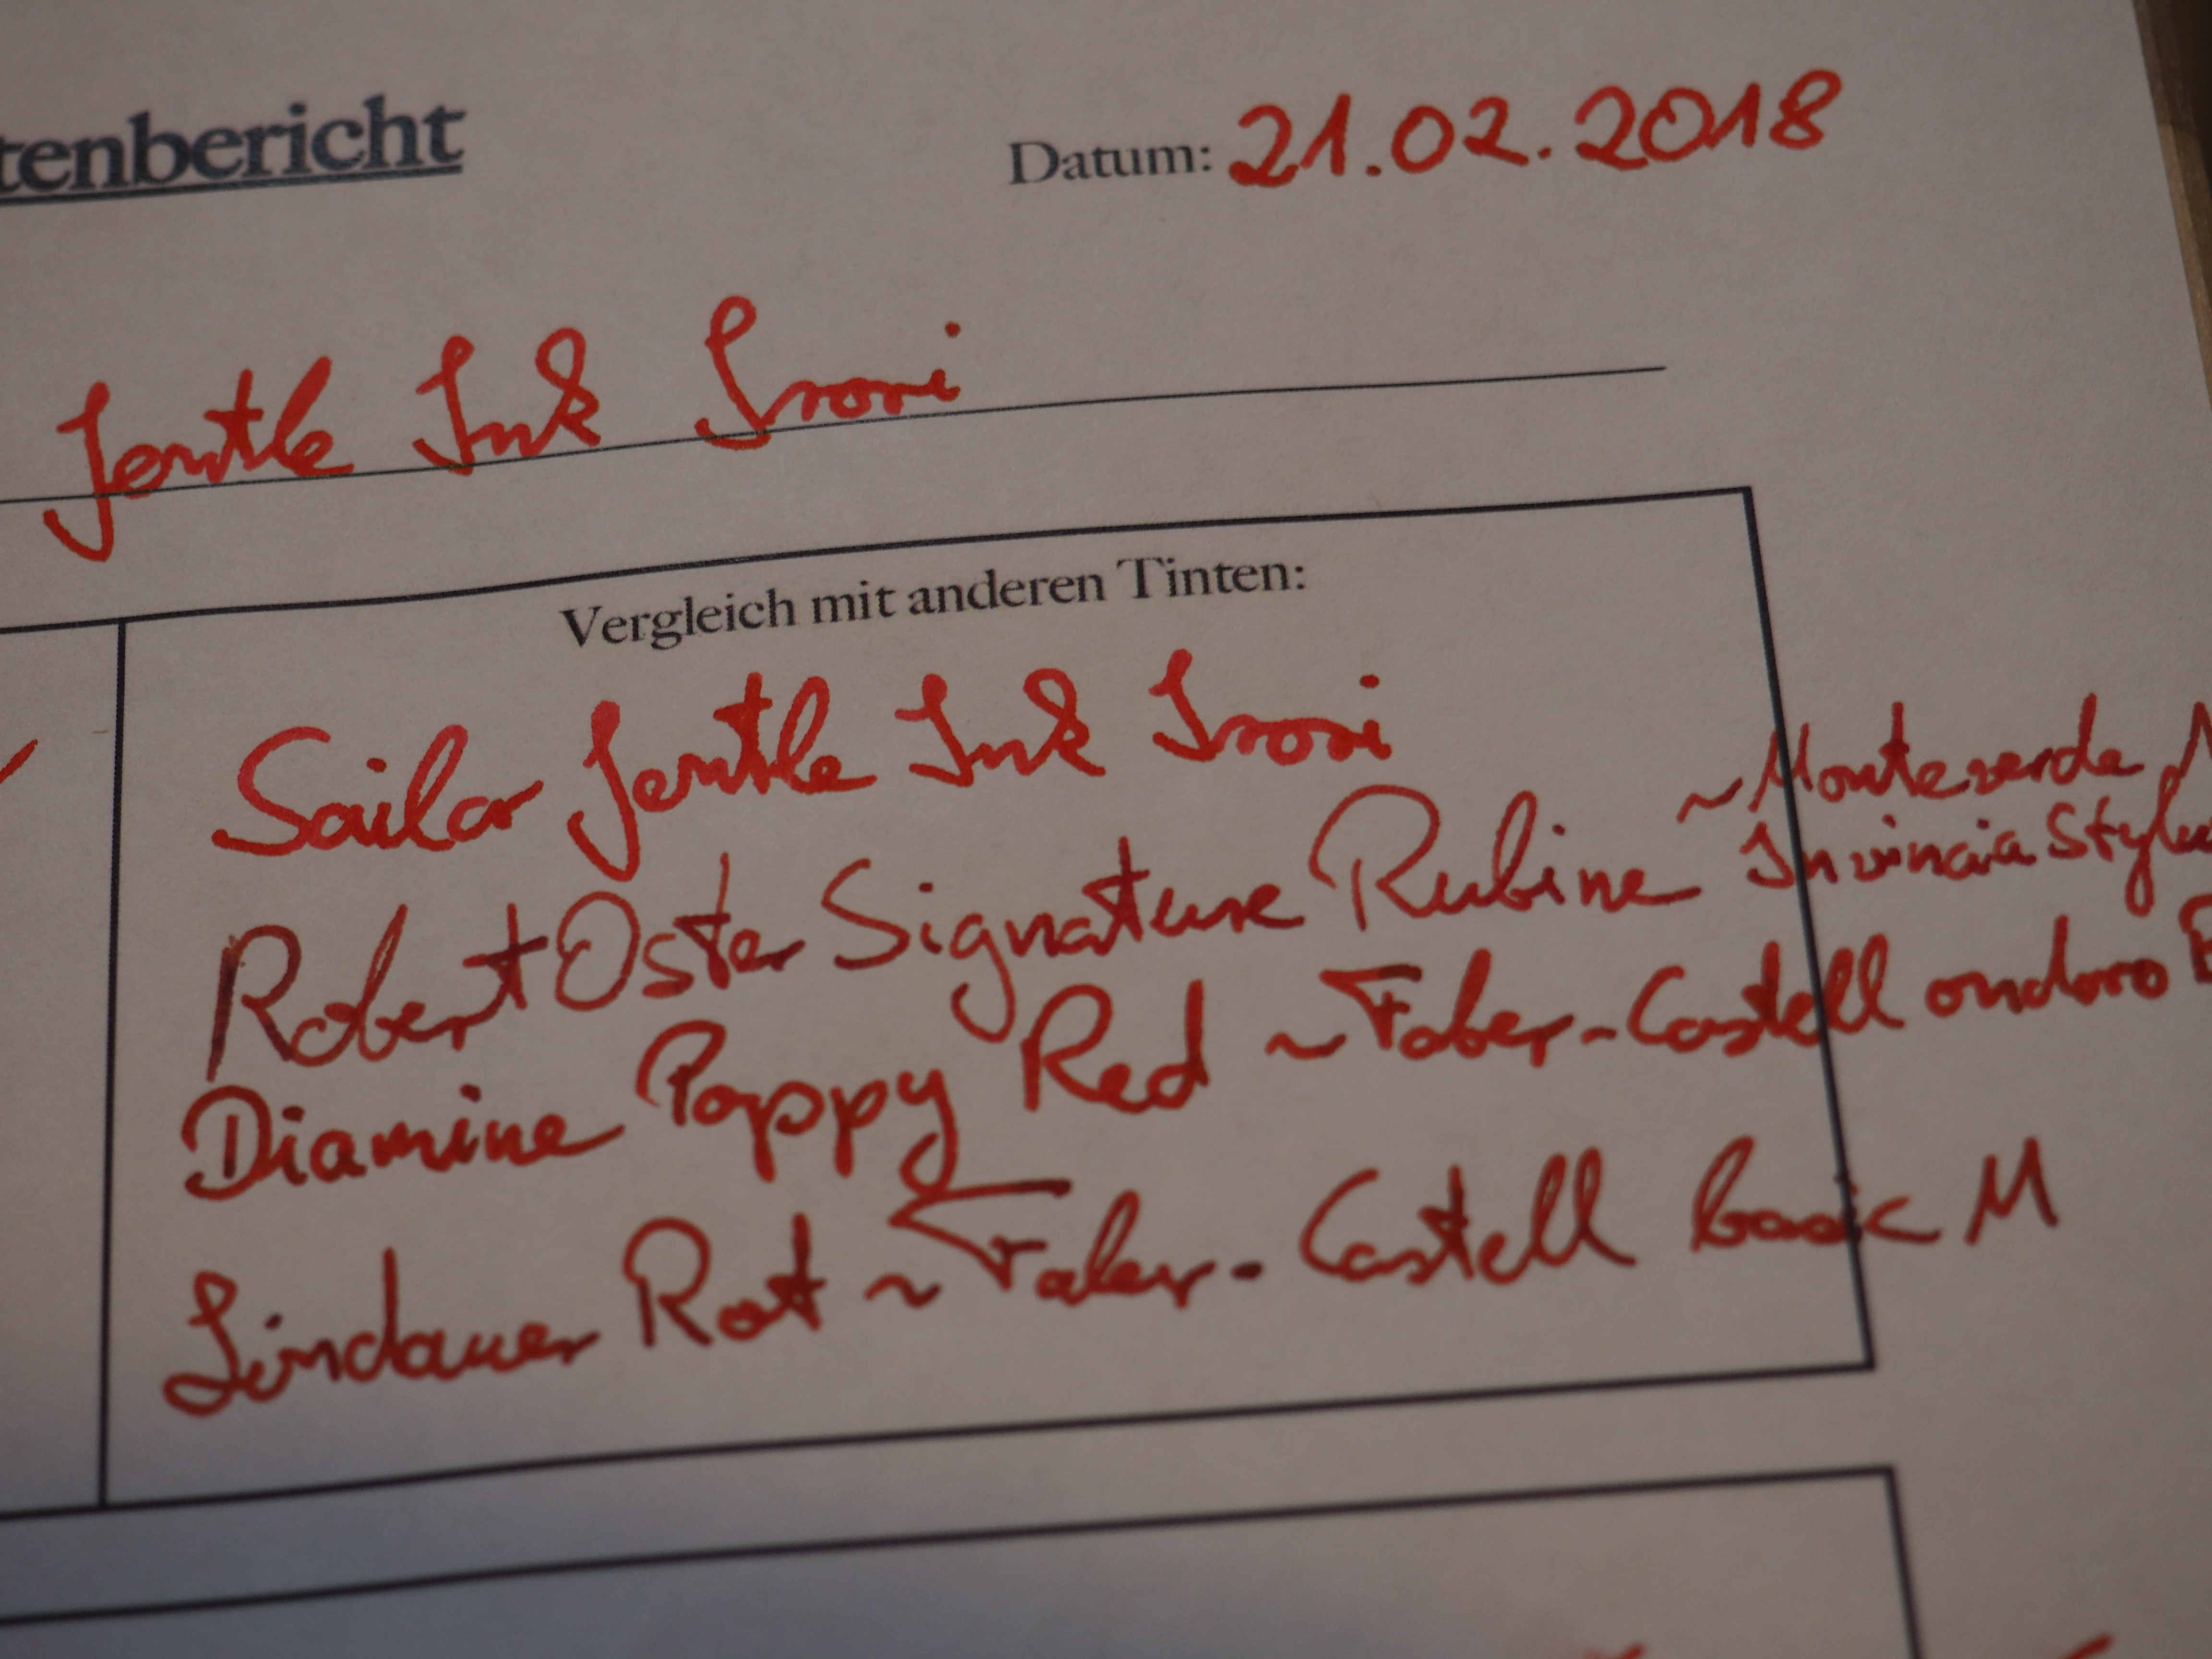 tenbericht Datum: 21.02.2018
Jentle Ink Irori
Vergleich mit anderen Tinten:
Sailor Jentle Ink Irori
Robert Oster Signature Rubine ~ Monteverde
Invincia Stylus
Diamine Poppy Red ~ Faber-Castell ondoro
Lindauer Rot ~ Faber-Castell basic M